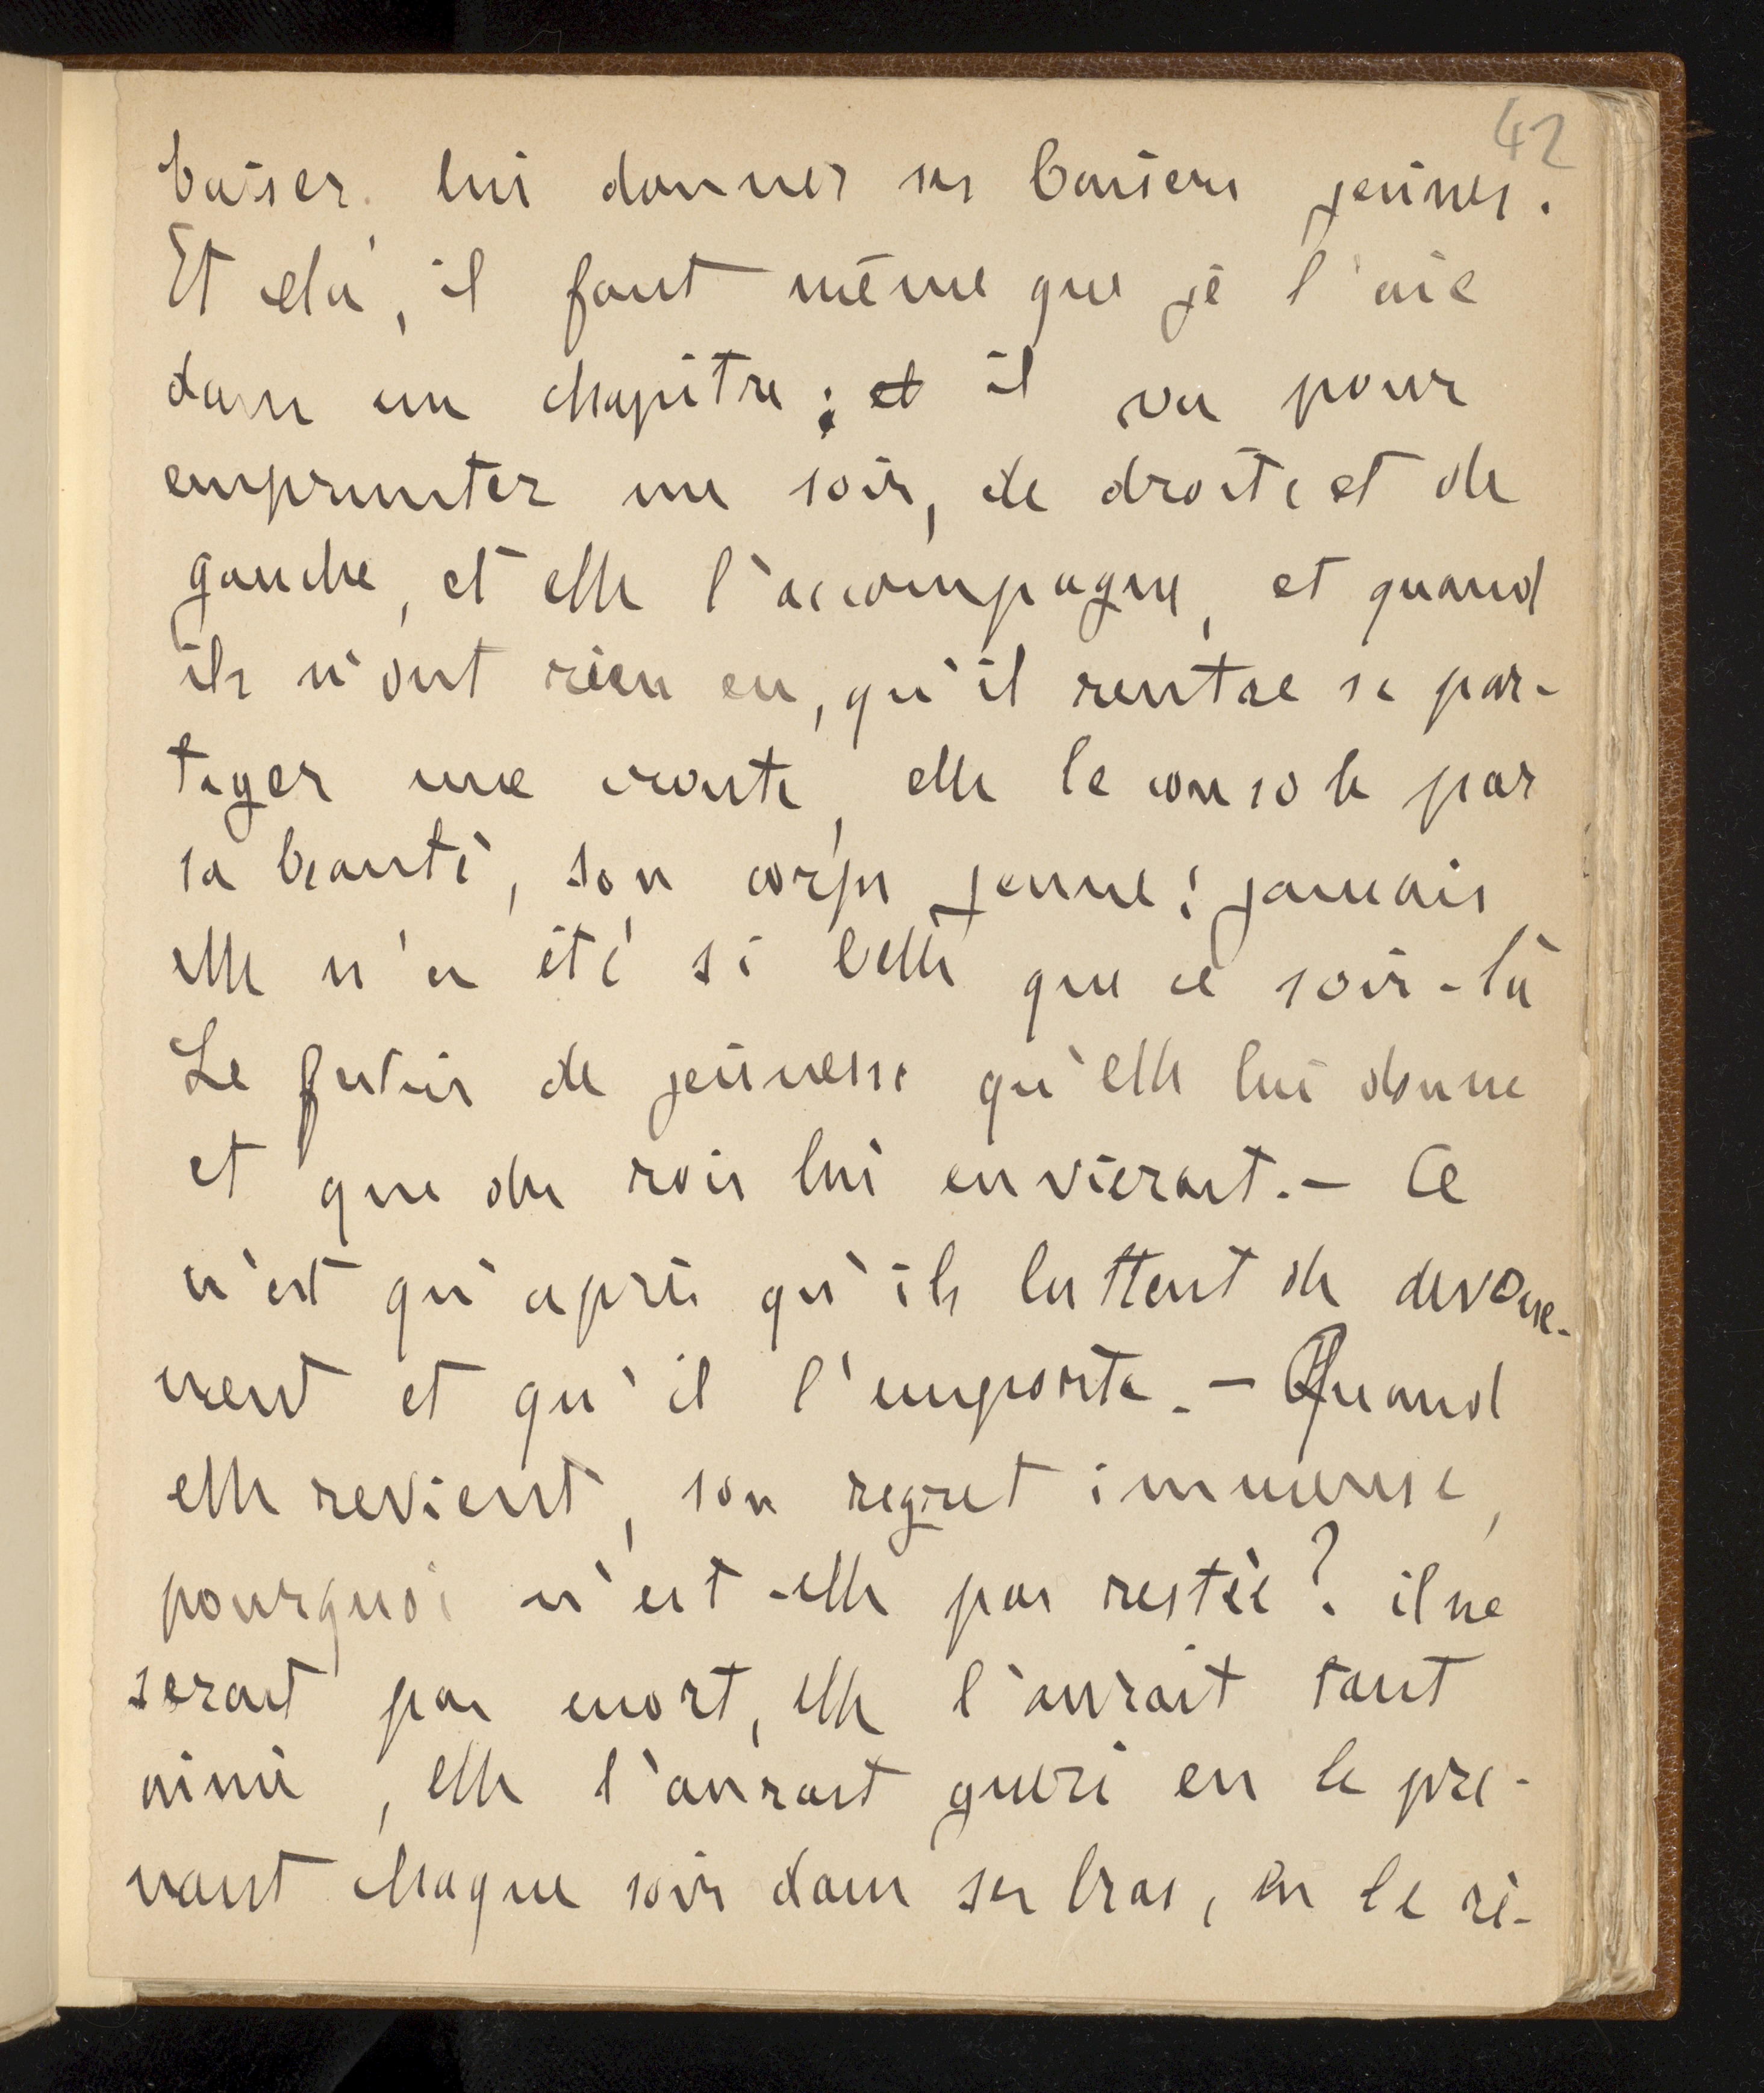 42
baiser, lui donner ses baisers jeunes.
Et cela, il faut même que je l'aie
dans un chapitre ; et il va pour
emprunter un soir, de droite et de
gauche, et elle l'accompagne, et quand
ils n'ont rien eu, qu'il rentre se par-
tager une croute, elle le console par
sa beauté, son corps jeune ; jamais
elle n'a été si belle que ce soir-là
Le festin de jeunesse qu'elle lui donne
et que des rois lui envierait. – Ce
n'est qu'après qu'ils luttent de devoue-
ment et qu'il l'emporte. – Quand
elle revient, son regret immense,
pourquoi n'est-elle pas restée ? il ne
serait pas mort, elle l'aurait tant
aimé, elle l'aurait gueri en le pre-
nant chaque soir dans ses bras, en le ré-